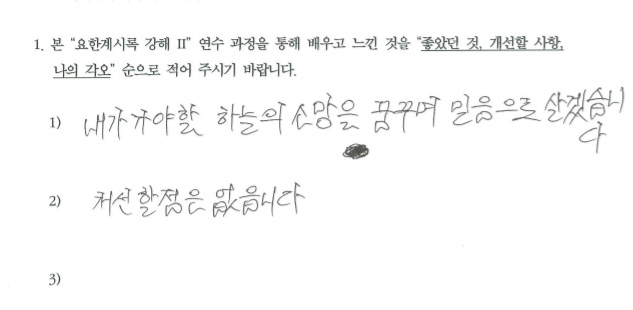 1. 본 “요한계시록 강해 II” 연수 과정을 통해 배우고 느낀 것을 “좋았던 것, 개선할 사항,
나의 각오” 순으로 적어 주시기 바랍니다.
1) 내가 가야할 하늘의 소망을 꿈꾸며 믿음으로 살겠습니
다
2) 개선할점은 없읍니다
3)